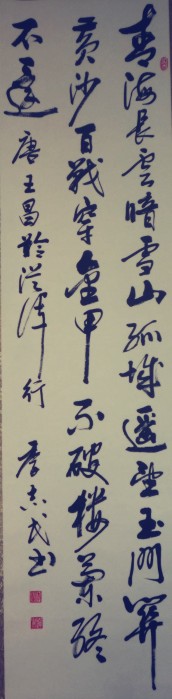 青海長雲暗雪山孤城遥望玉門關
黄沙百戰穿金甲不破樓蘭終
不還 唐王昌齡從軍行 李志民书